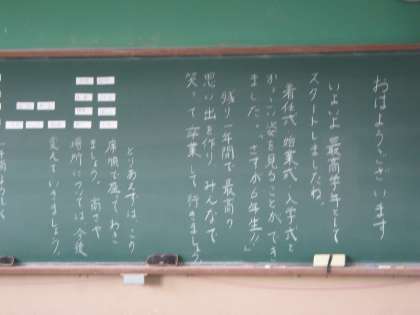 おはようございます
いよいよ最高学年として
スタートしましたね。
着任式・始業式・入学式と
かっこいい姿を見ることができ
ました。さすが6年生!!
残り一年間で最高の
思い出を作り、みんなで
笑って卒業して行きましょう
とりあえずは、この
座席で座っておき
ましょう。
場所については今後
変えていきましょう。